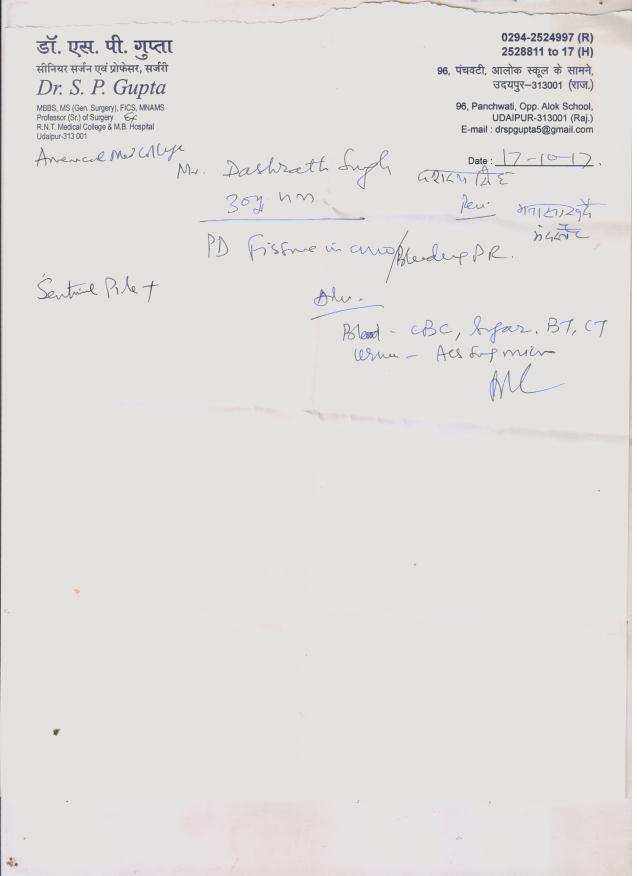 डॉ. एस. पी. गुप्ता
सीनियर सर्जन एवं प्रोफेसर, सर्जरी
Dr. S. P. Gupta
MBBS, MS (Gen. Surgery), FICS, MNAMS
Professor (Sr.) of Surgery Ex
R.N.T. Medical College & M.B. Hospital
Udaipur-313 001
0294-2524997 (R)
2528811 to 17 (H)
96, पंचवटी, आलोक स्कूल के सामने,
उदयपुर–313001 (राज.)
96, Panchwati, Opp. Alok School,
UDAIPUR-313001 (Raj.)
E-mail : drspgupta5@gmail.com
Date : 17-10-17.
Mr. Dashrath Singh
दशरथ सिंह
PD Fissure in ano/Bleeding PR.
Sentinel Pile +
Adv.
Blood - CBC, Sugar, BT, CT
Urine -